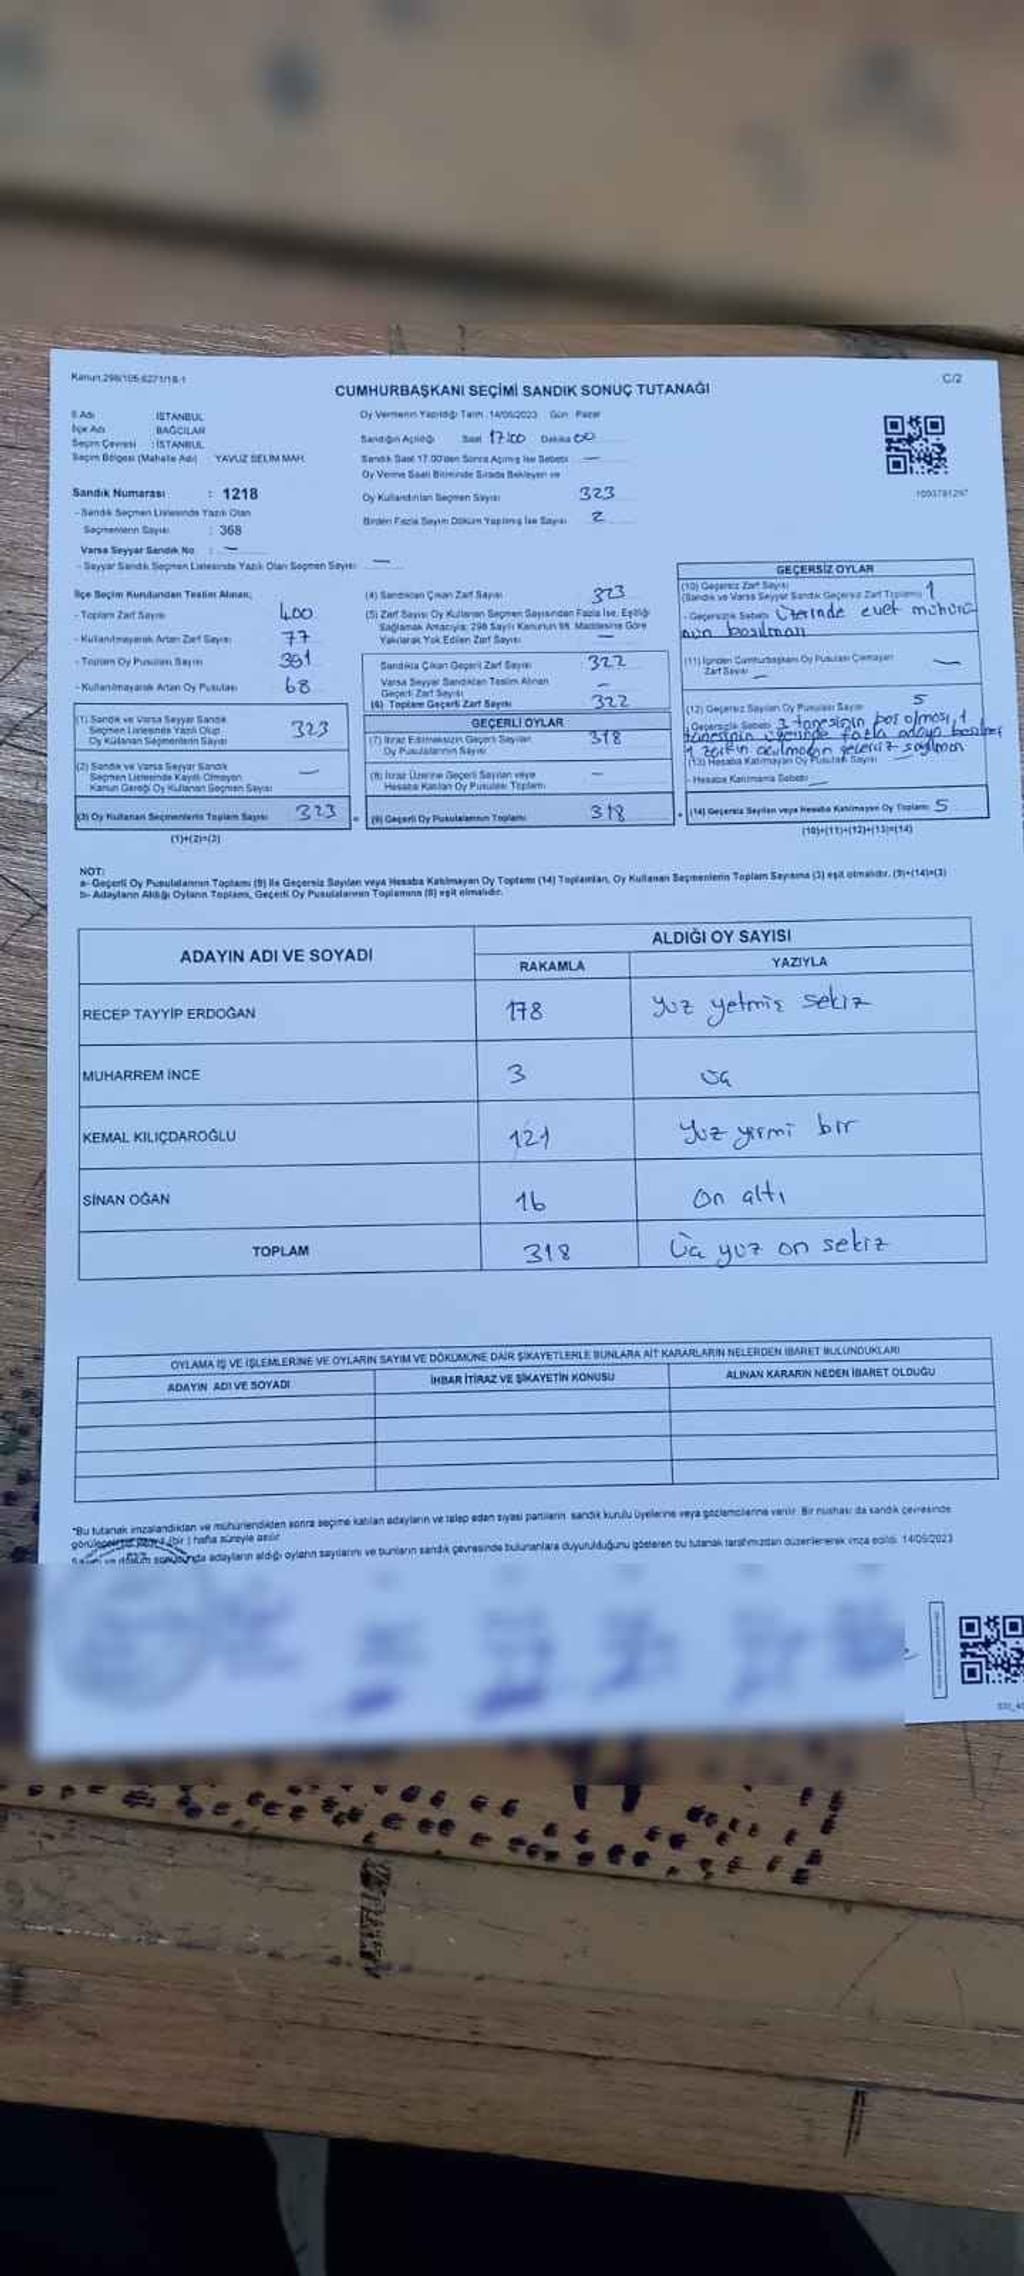 Kanun:298/105-6271/18-1
C/2
CUMHURBAŞKANI SEÇİMİ SANDIK SONUÇ TUTANAĞI
İl Adı : İSTANBUL
İlçe Adı : BAĞCILAR
Seçim Çevresi : İSTANBUL
Seçim Bölgesi (Mahalle Adı) : YAVUZ SELİM MAH.
Sandık Numarası : 1218
- Sandık Seçmen Listesinde Yazılı Olan
Seçmenlerin Sayısı : 368
Varsa Seyyar Sandık No : —
- Seyyar Sandık Seçmen Listesinde Yazılı Olan Seçmen Sayısı : —
Oy Vermenin Yapıldığı Tarih : 14/05/2023 Gün : Pazar
Sandığın Açıldığı Saat 17:00 Dakika 00
Sandık Saat 17.00'den Sonra Açılmış İse Sebebi —
Oy Verme Saati Bitiminde Sırada Bekleyen ve
Oy Kullandırılan Seçmen Sayısı 323
Birden Fazla Sayım Döküm Yapılmış İse Sayısı 2
1093781297
İlçe Seçim Kurulundan Teslim Alınan;
- Toplam Zarf Sayısı 400
- Kullanılmayarak Artan Zarf Sayısı 77
- Toplam Oy Pusulası Sayısı 391
- Kullanılmayarak Artan Oy Pusulası 68
(1) Sandık ve Varsa Seyyar Sandık
Seçmen Listesinde Yazılı Olup
Oy Kullanan Seçmenlerin Sayısı 323
(2) Sandık ve Varsa Seyyar Sandık
Seçmen Listesinde Kayıtlı Olmayan
Kanun Gereği Oy Kullanan Seçmen Sayısı —
(3) Oy Kullanan Seçmenlerin Toplam Sayısı 323
(1)+(2)=(3)
(4) Sandıktan Çıkan Zarf Sayısı 323
(5) Zarf Sayısı Oy Kullanan Seçmen Sayısından Fazla İse, Eşitliği
Sağlamak Amacıyla; 298 Sayılı Kanunun 98. Maddesine Göre
Yakılarak Yok Edilen Zarf Sayısı —
Sandıkta Çıkan Geçerli Zarf Sayısı 322
Varsa Seyyar Sandıktan Teslim Alınan
Geçerli Zarf Sayısı —
(6) Toplam Geçerli Zarf Sayısı 322
GEÇERLİ OYLAR
(7) İtiraz Edilmeksizin Geçerli Sayılan
Oy Pusulalarının Sayısı 318
(8) İtiraz Üzerine Geçerli Sayılan veya
Hesaba Katılan Oy Pusulası Toplamı —
(9) Geçerli Oy Pusulalarının Toplamı 318
GEÇERSİZ OYLAR
(10) Geçersiz Zarf Sayısı
(Sandık ve Varsa Seyyar Sandık Geçersiz Zarf Toplamı) 1
- Geçersizlik Sebebi Üzerinde evet mührü
nün basılması
(11) İçinden Cumhurbaşkanı Oy Pusulası Çıkmayan
Zarf Sayısı —
(12) Geçersiz Sayılan Oy Pusulası Sayısı 5
- Geçersizlik Sebebi 3 tanesinin boş olması, 1
tanesinin üzerinde fazla adaya basılması
1 zarfın açılmadan geçersiz sayılması
(13) Hesaba Katılmayan Oy Pusulası Sayısı
- Hesaba Katılmama Sebebi —
(14) Geçersiz Sayılan veya Hesaba Katılmayan Oy Toplamı 5
(10)+(11)+(12)+(13)=(14)
NOT:
a- Geçerli Oy Pusulalarının Toplamı (9) ile Geçersiz Sayılan veya Hesaba Katılmayan Oy Toplamı (14) Toplamları, Oy Kullanan Seçmenlerin Toplam Sayısına (3) eşit olmalıdır. (9)+(14)=(3)
b- Adayların Aldığı Oyların Toplamı, Geçerli Oy Pusulalarının Toplamına (9) eşit olmalıdır.
ADAYIN ADI VE SOYADI
ALDIĞI OY SAYISI
RAKAMLA YAZIYLA
RECEP TAYYİP ERDOĞAN 178 Yüz yetmiş sekiz
MUHARREM İNCE 3 üç
KEMAL KILIÇDAROĞLU 121 Yüz yirmi bir
SİNAN OĞAN 16 On altı
TOPLAM 318 Üç yüz on sekiz
OYLAMA İŞ VE İŞLEMLERİNE VE OYLARIN SAYIM VE DÖKÜMÜNE DAİR ŞİKAYETLERLE BUNLARA AİT KARARLARIN NELERDEN İBARET BULUNDUKLARI
ADAYIN ADI VE SOYADI İHBAR İTİRAZ VE ŞİKAYETİN KONUSU ALINAN KARARIN NEDEN İBARET OLDUĞU
*Bu tutanak imzalandıktan ve mühürlendikten sonra seçime katılan adayların ve talep eden siyasi partilerin sandık kurulu üyelerine veya gözlemcilerine verilir. Bir nüshası da sandık çevresinde
(bir) hafta süreyle asılır.
Sayım ve döküm sonucunda adayların aldığı oyların sayılarını ve bunların sandık çevresinde bulunanlara duyurulduğunu gösteren bu tutanak tarafımızdan düzenlenerek imza edildi. 14/05/2023